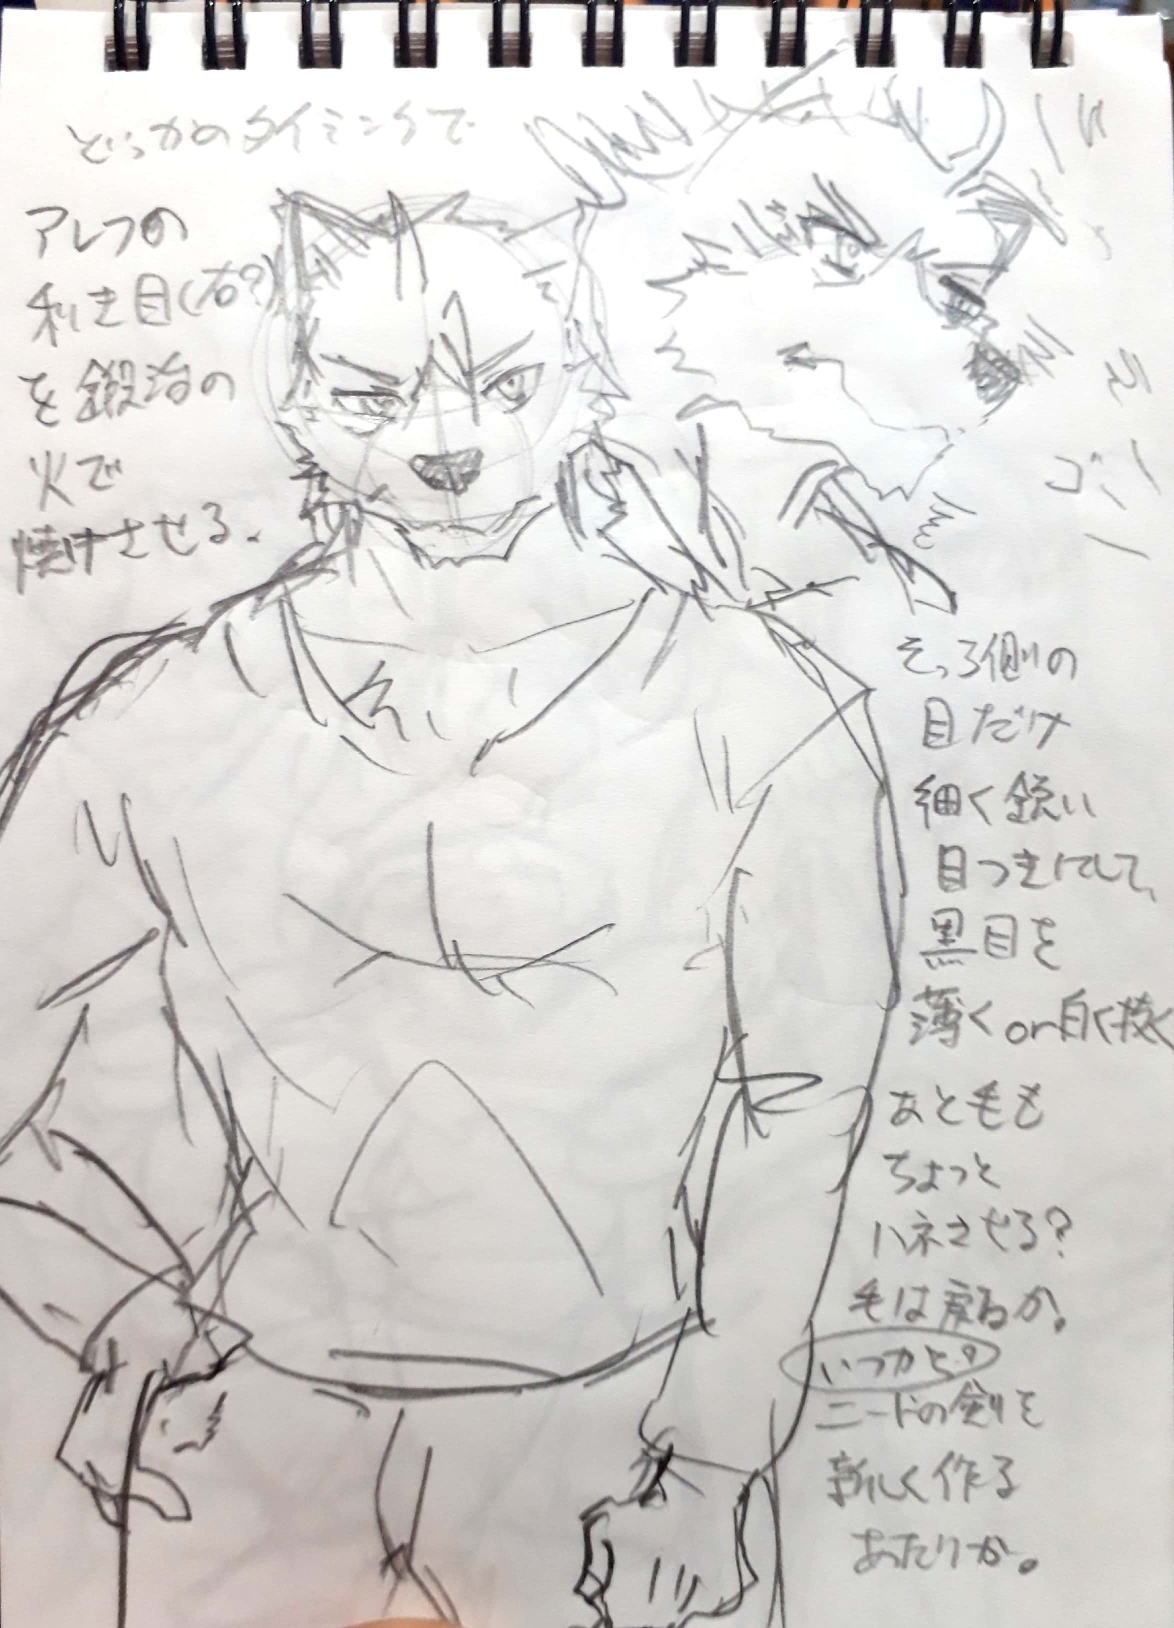 どっかのタイミングで
アレフの
利き目(右?)
を鍛治の
火で
焼けさせる。
ゴー
そっち側の
目だけ
細く鋭い
目つきにして、
黒目を
薄くor白く抜く
あと毛も
ちょっと
ハネさせる?
毛は戻るか。
いつから?
ニードの剣を
新しく作る
あたりか。